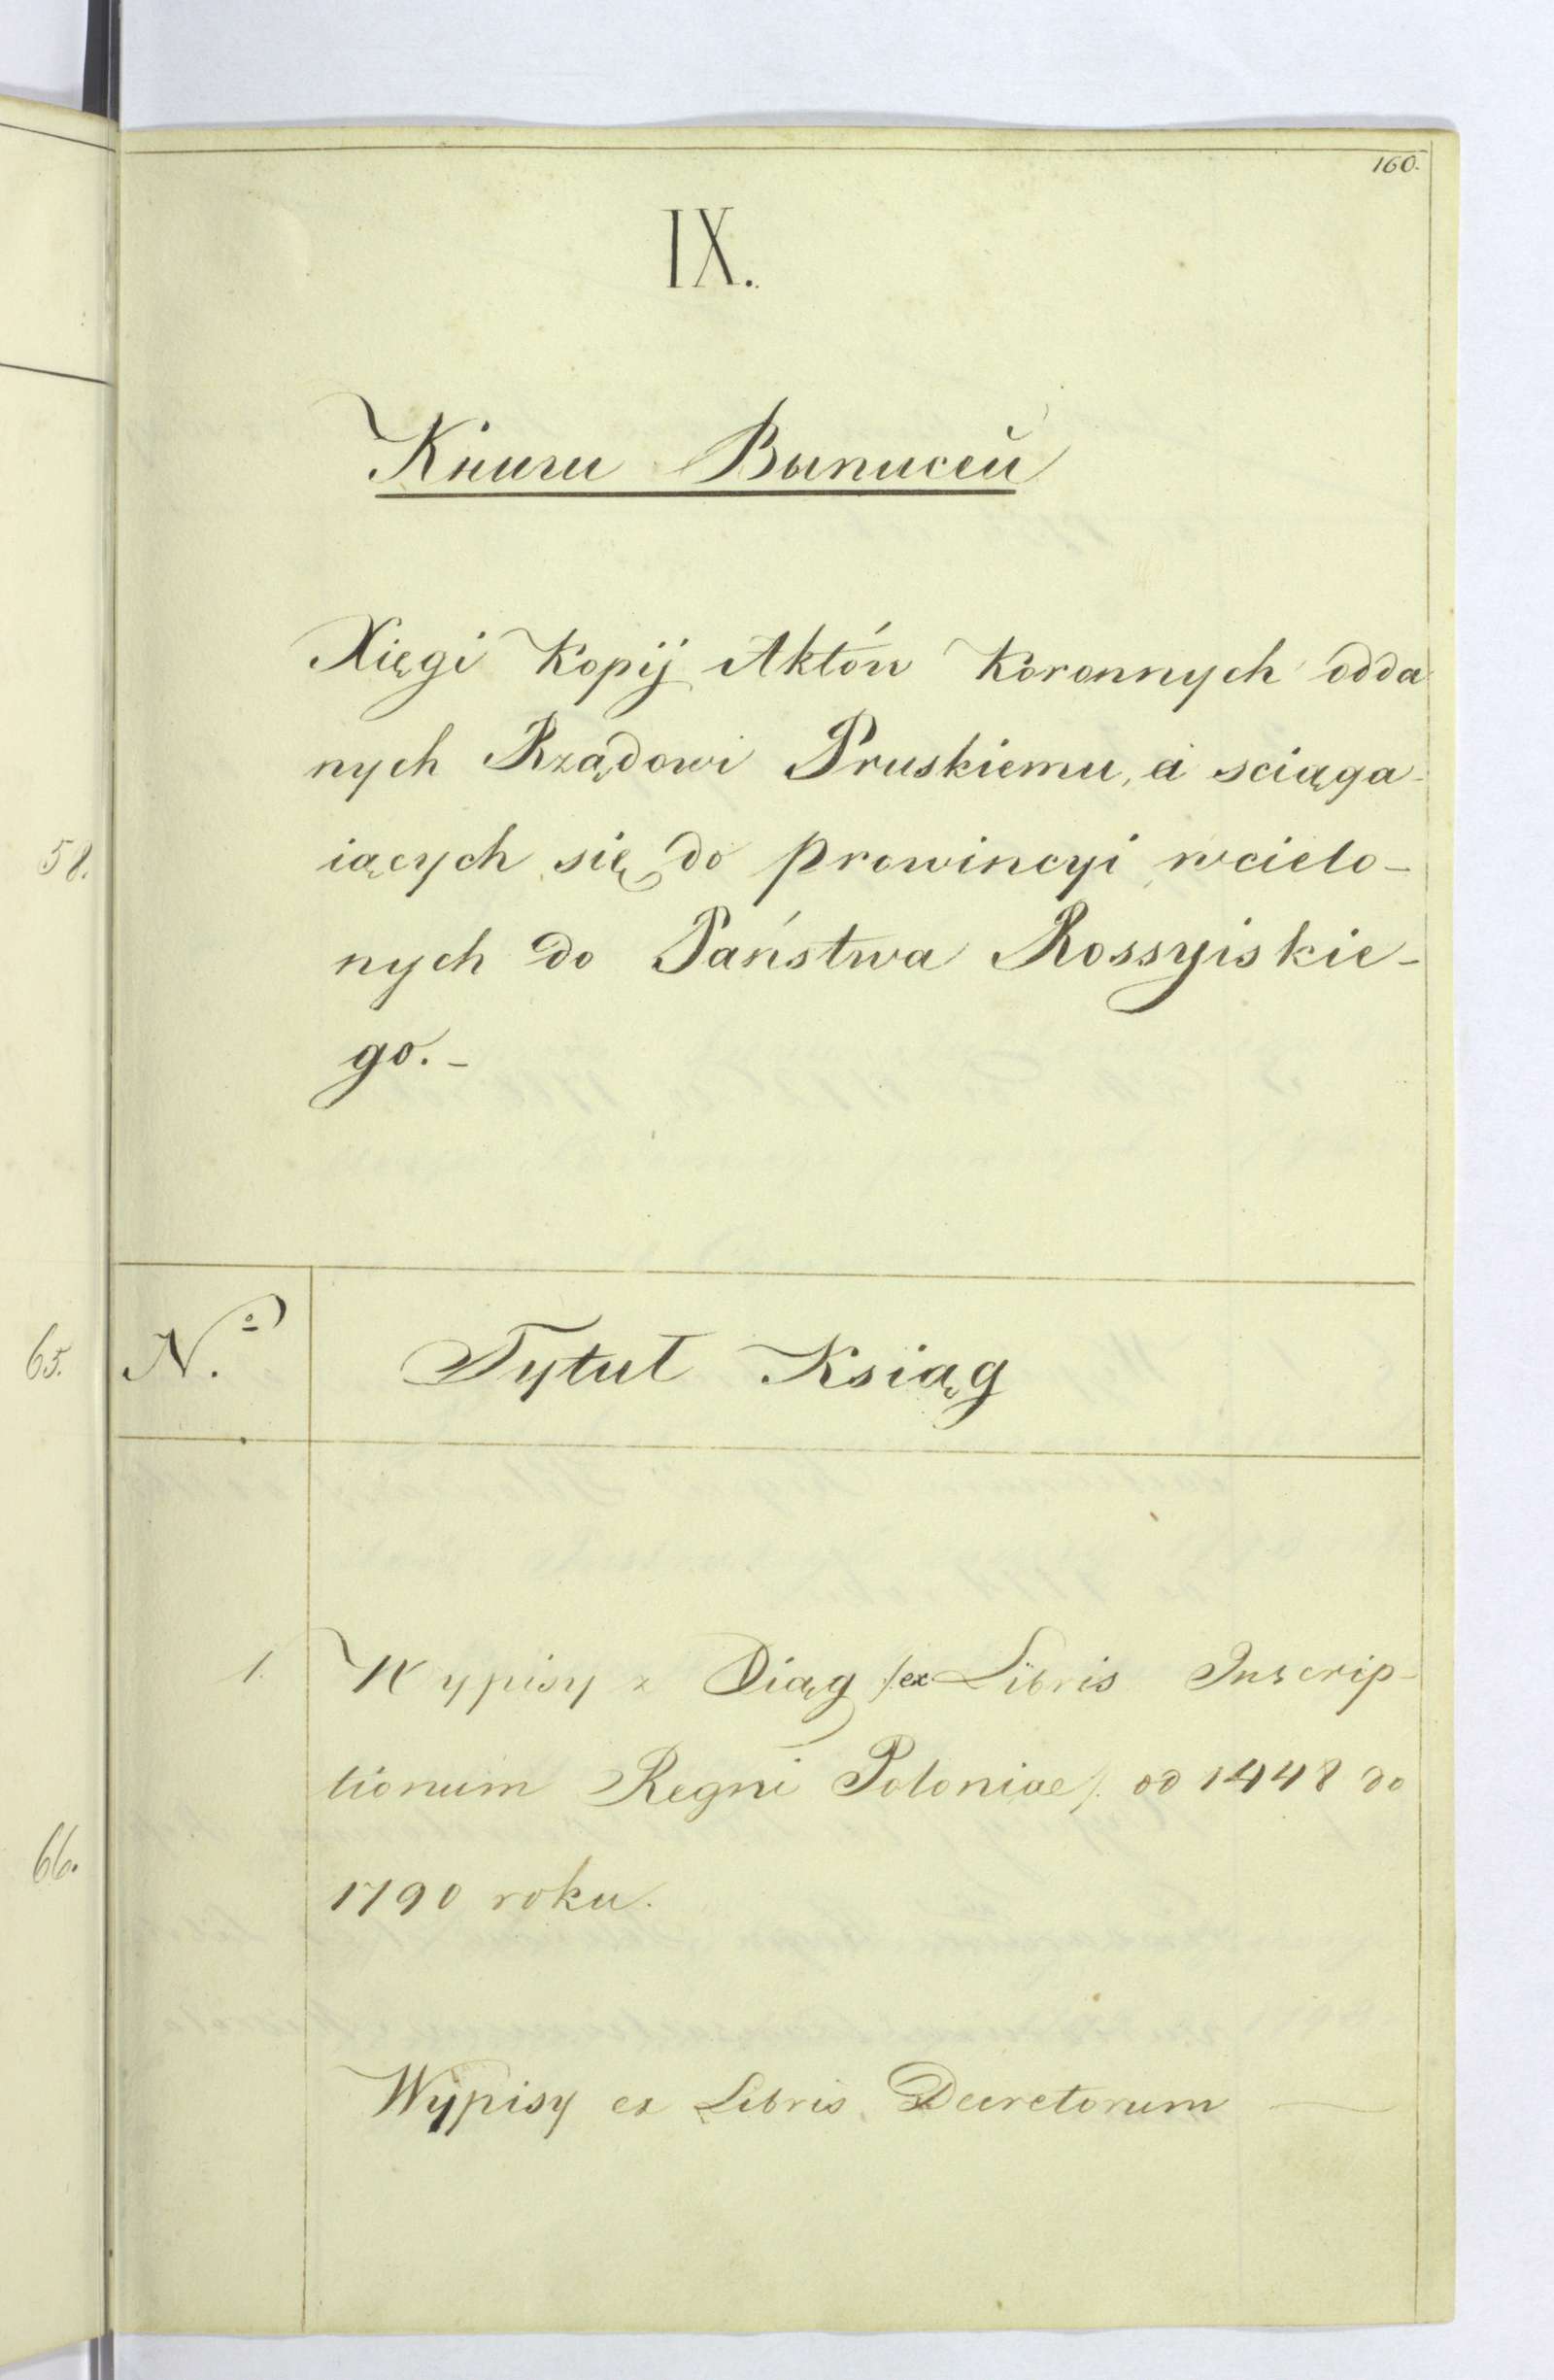 160.
IX.
Книги Выписей
Xięgi Kopij Aktów Koronnych odda
nych Rządowi Pruskiemu, a sciąga-
iących się do prowincyi wcielo-
nych do Państwa Rossyiskie-
go.-
N.º Tytuł Ksiąg
1. Wypisy z Xiąg /ex Libris Inscrip-
tionum Regni Poloniae/. od 1448 do
1790 roku.
Wypisy ex Libris Decretorum —
58.
65.
66.